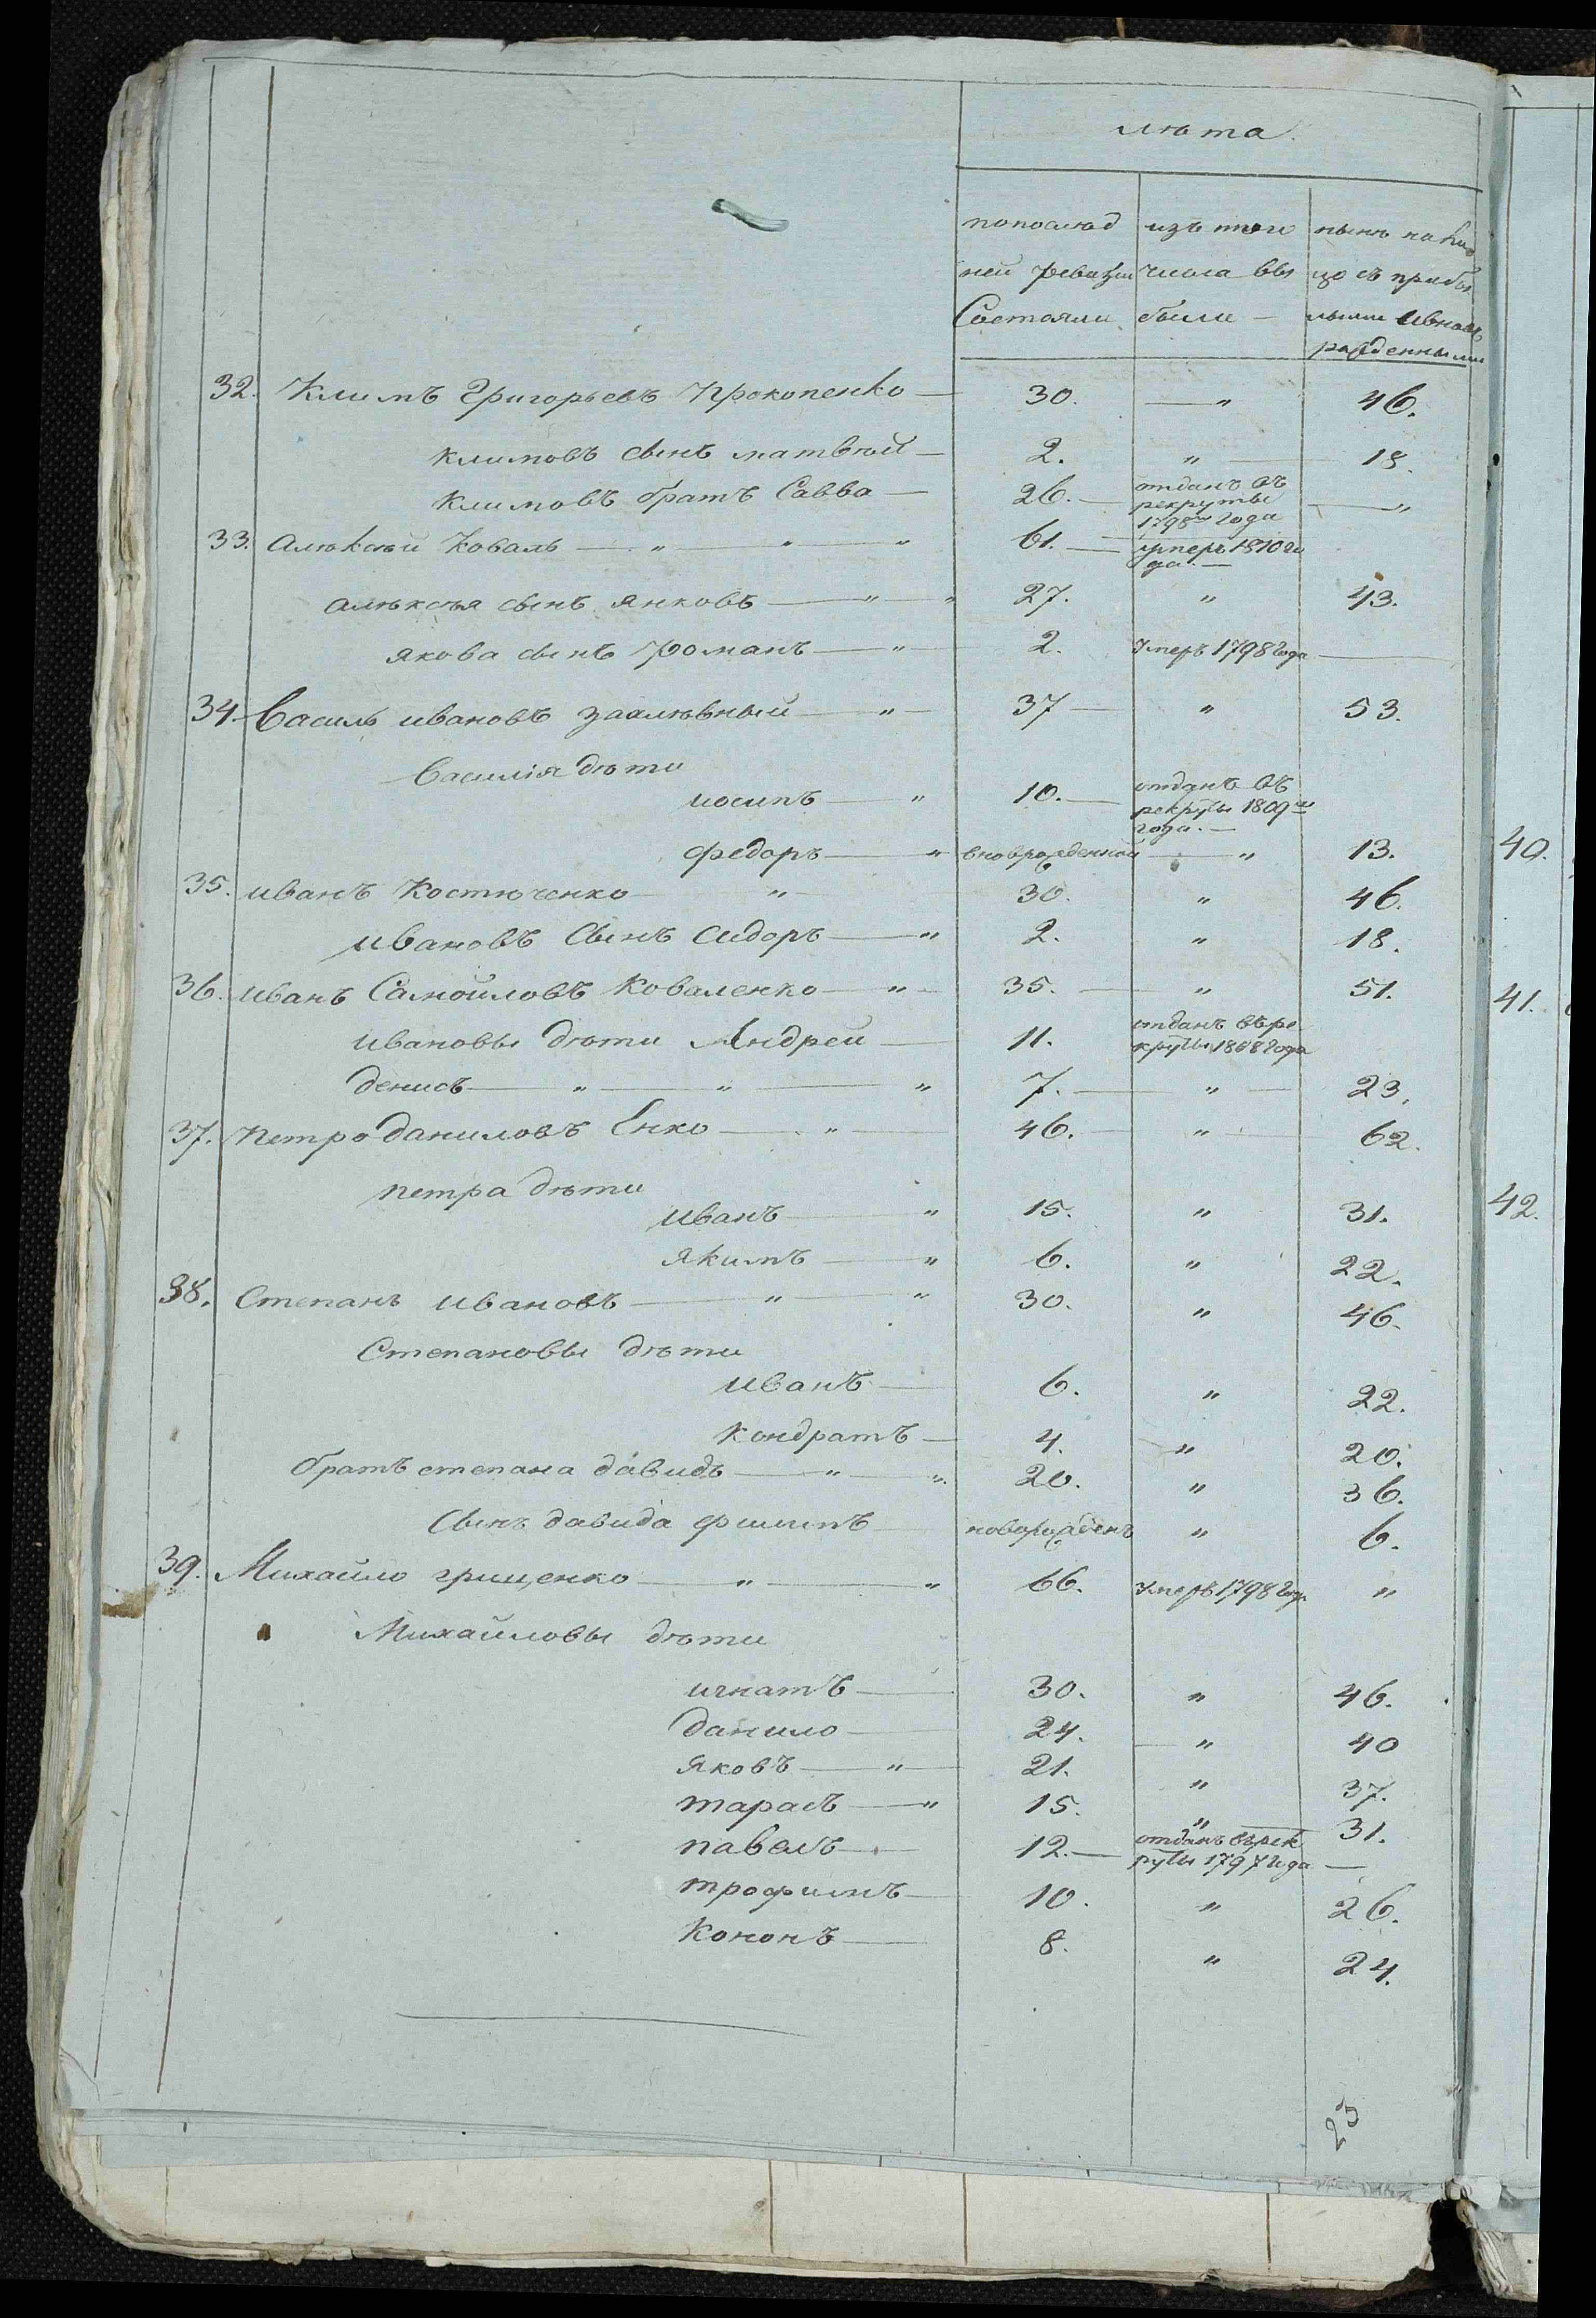 лѣта.
попослѣд изъ того нынѣ на ли
ней ревизіи числа вы цо съ прибы
Состояли были — лыми ивновь
рожденными
32. Климъ Григорьевъ Прокопенко — 30. — " 46.
климовъ сынъ матвѣй — 2. " — 18.
климовъ братъ Савва — 26. — отданъ въ рекруты 1798го года — "
33. алѣксѣй Коваль — " — " — " 61. — умперъ 1810 го да. —
алѣксѣя сынъ янковъ — " — " 27. " 43.
якова сынъ романъ — " 2. умеръ 1798 года —
34. Василь ивановъ заалѣвный — " — 37 — " 53.
Василія дѣти
иосипъ — " 10. — отданъ въ рекруты 1809го года. —
федоръ — " вноврожденной — " 13.
35. иванъ Костюченко — " — 30. " 46.
ивановъ Сынъ Сидоръ — " 2. " 18.
36. иванъ Самойловъ Коваленко — " — 35. — " 51.
ивановы дѣти Андрей — 11. отданъ въре круты 1808 года
денисъ — " — " — " 7. — " — 23.
37. петро даниловъ Енко — " — 46. — " — 62.
петра дѣти
иванъ — " 15. " 31.
якимъ — " 6. " 22.
38. Степанъ ивановъ — " — " 30. " 46.
Степановы дѣти
иванъ — 6. " 22.
кондратъ — 4. " 20.
братъ степана давидъ — " — " 20. " 36.
Сынъ давида филипъ — новорожденъ " 6.
39. Михайло грищенко — " — " 66. умеръ 1798 год. "
Михайловы дѣти
игнатъ — 30. " 46.
данило — 24. — " 40
яковъ — " — 21. " 37.
тарасъ — " 15. " 31.
павелъ — 12. — отданъ върек руты 1797 года —
трофимъ — 10. " 26.
Кононъ — 8. " 24.
23
40.
41.
42.